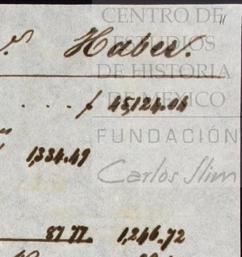 CENTRO DE
ESTUDIOS
DE HISTORIA
DE MEXICO
FUNDACIÓN
Carlos Slim
Haber.
. . . . f 45,124.04
1,334.49
87.77 1,246.72